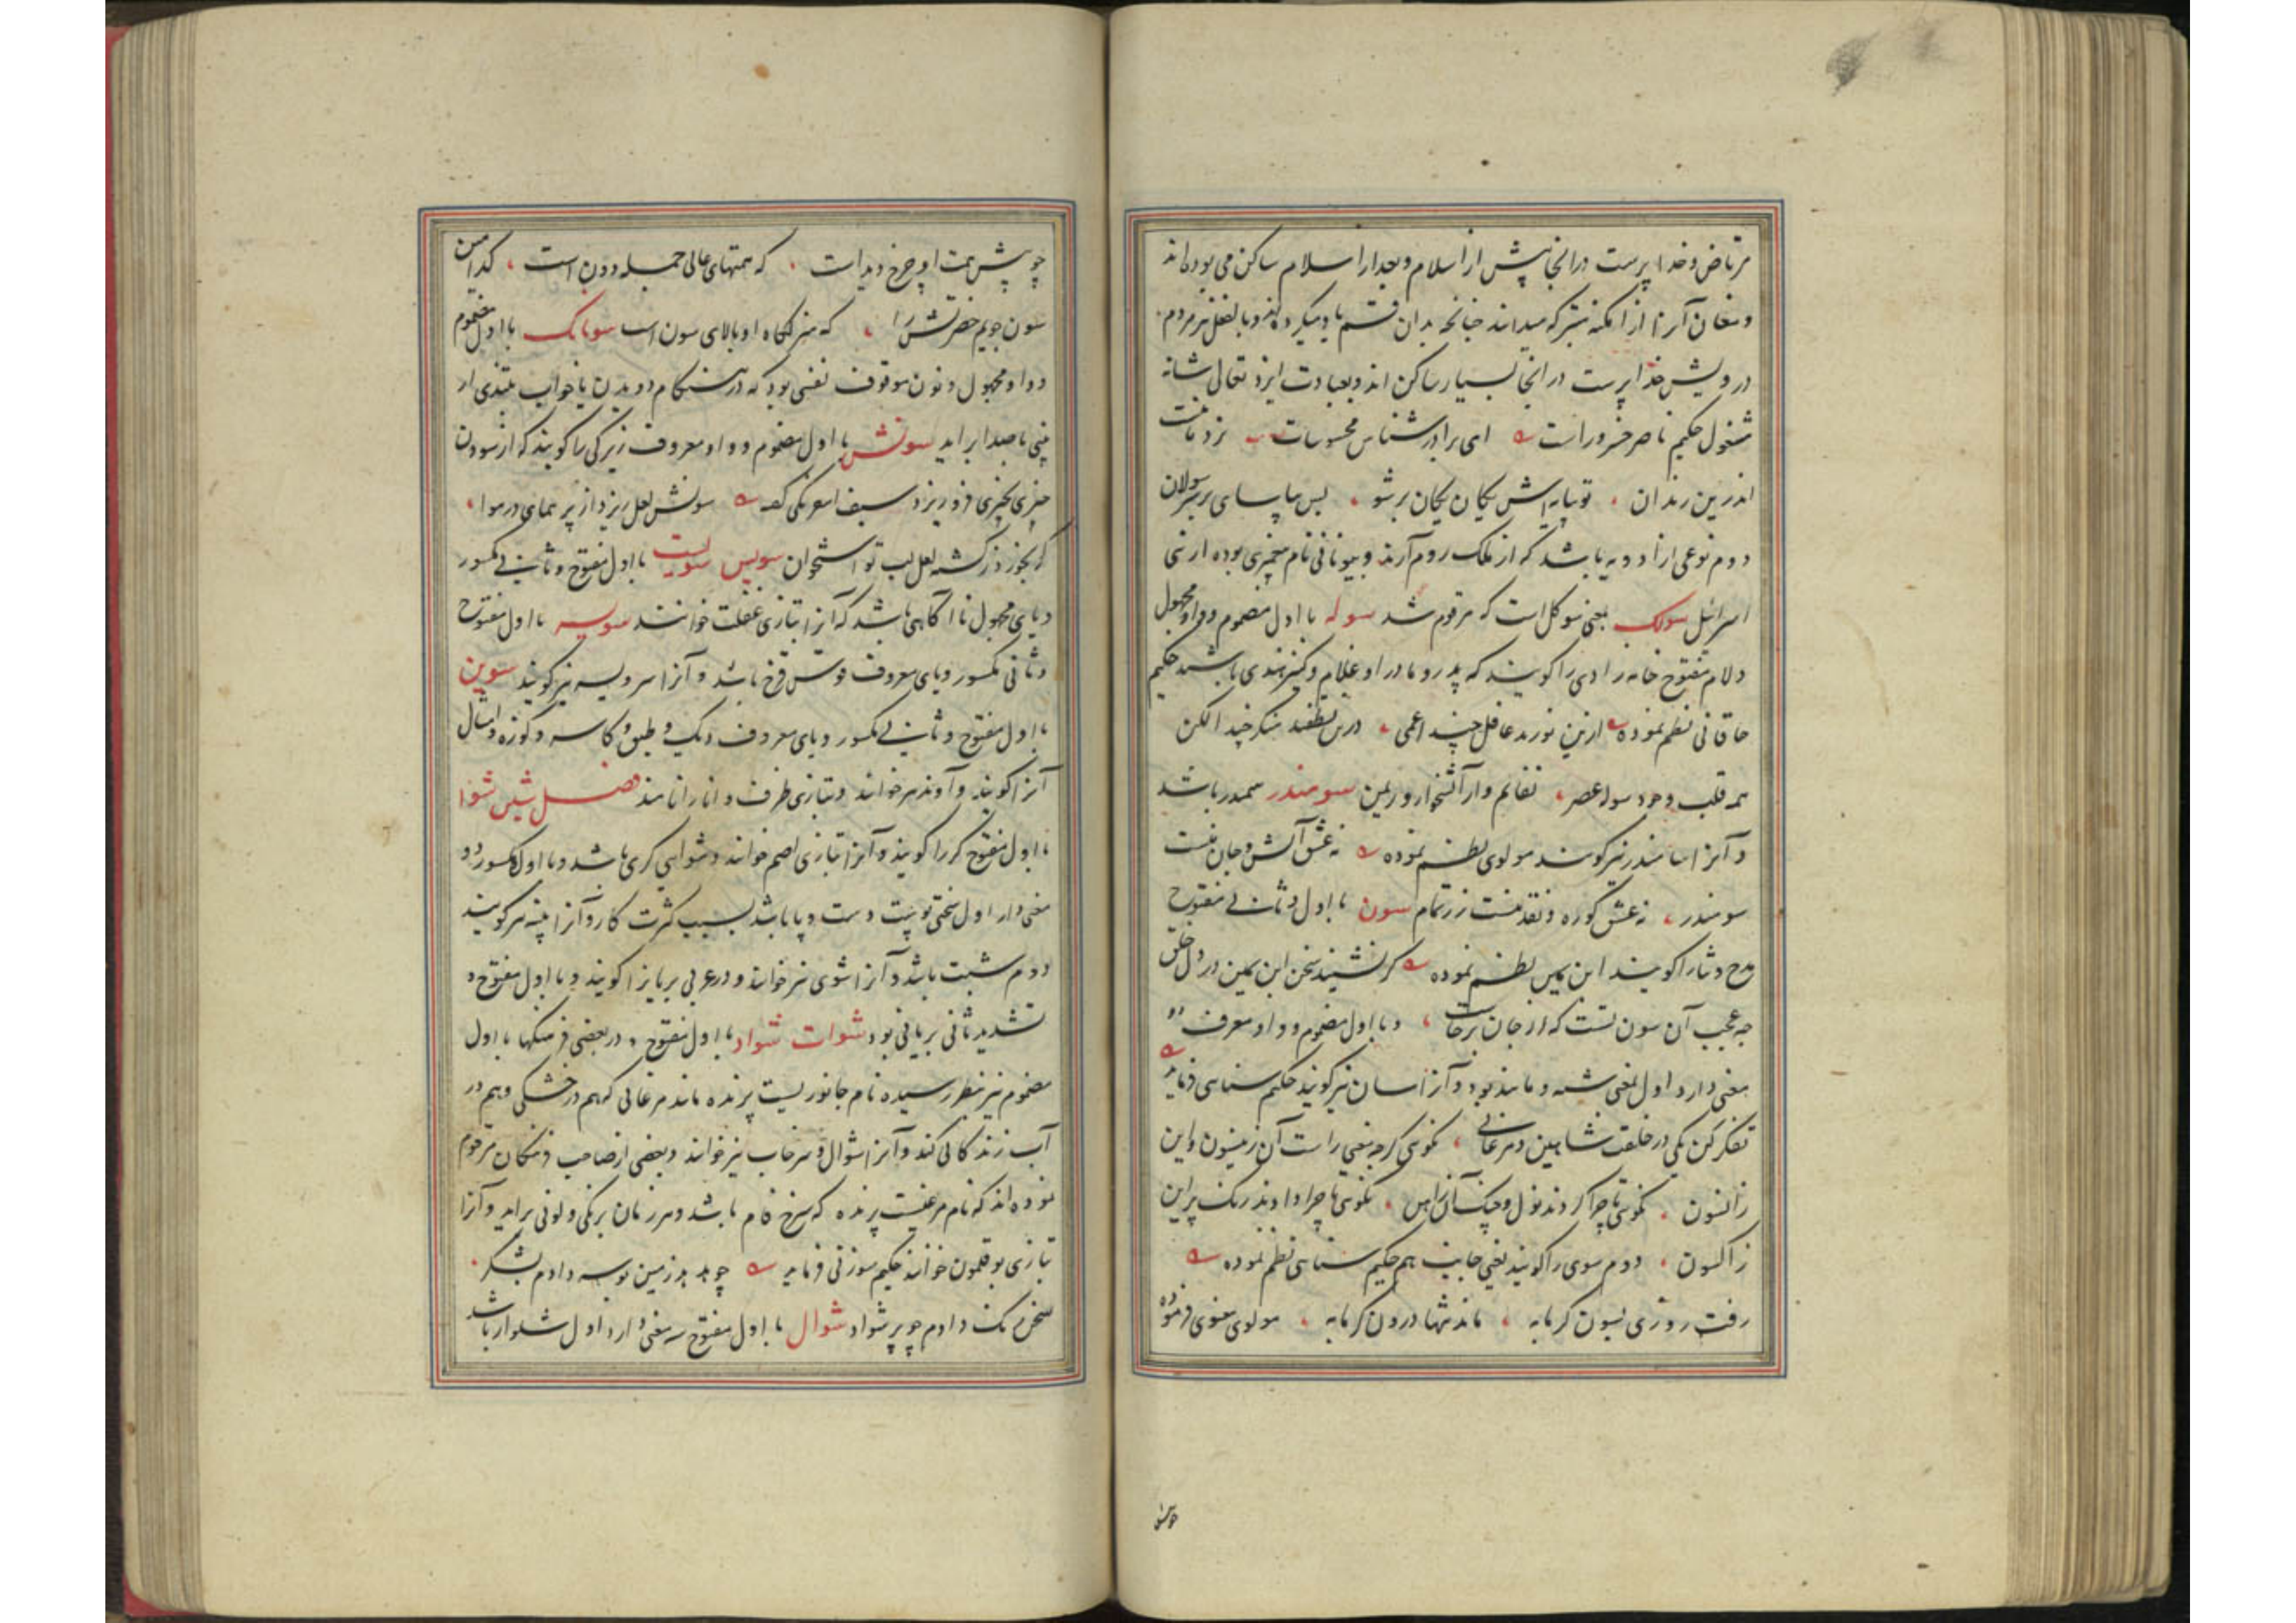 مرتاض و خدا پرست در انجا پیش از اسلام و بعد از اسلام ساکن می بوده اند
و مغان آنرا از امکنه متبرکه میدانند چنانچه بدان قسم یاد میکرده اند و بالفعل نیز مردم
درویش خدا پرست در انجا بسیار ساکن اند و بعبادت ایزد تعالی شانه
مشغول حکیم ناصر خسرو راست ای برادر شناس محسوسات نردبانست
اندرین زندان تو پایه اش یکان یکان برشو پس بیاسای بر سر سولان
دوم نوعی از ادویه باشد که از ملک روم آرند و بیونانی نام پیغمبری بوده از بنی
اسرائیل سولک بمعنی سوکل است که مرقوم شد سوله با اول مضموم و واو مجهول
و لام مفتوح خانه زادی را گویند که پدر و مادر او غلام و کنیز هندی باشند حکیم
خاقانی نظم نموده ازین نورند غافل چند اعمی درین نطقند منکر چند الکن
همه قلب وجود سوله عصر نفایم وار آتشخوار و ریمن سومندر سمندر باشد
و آنرا سامندر نیز گویند مولوی نظم نموده نه عشق آتش و جان منست
سومندر نه عشق کوره و نقد منست زر تمام سون با اول و ثانی مفتوح
مدح و ثنا را گویند ابن یمین نظم نموده گر نشیند سخن ابن یمین در دل خلق
چه عجب آن سون تست که از جان برخاست و با اول مضموم و واو معرف دو
معنی دارد اول بمعنی شبه و مانند بود و آنرا سان نیز گویند حکیم سنایی فرماید
تفکر کن یکی در خلقت شاهین و مرغابی نگویی کرچه معنی راست آن زینسون و این
زانسون نگویی تا چرا کردند نول و چنگ آنرا این نگویی تا چرا دادند رنگ پر این
زاکسون دوم سوی را گویند یعنی جانب هم حکیم سنایی نظم نموده
رفت روزی بسون گرمابه ماند تنها درون گرمابه مولوی معنوی فرموده
چو پیش همت او چرخ دید است که همتهای عالی جمله دون است کدامین
سون جویم حضرتش را که منزلگاه او بالای سون است سونک با اول مضموم
و واو مجهول و نون موقوف نفسی بود که در هنگام دویدن یا خواب بتندی از
بینی با صدا بر اید سونش با اول مضموم و واو معروف زیرکی را گویند که از سودن
چیزی بچیزی فرو ریزد سیف اسفرنگی گفته سونش لعل ریزد از پر همای در هوا
گر بخورد ز کشته لعل لب تو استخوان سویس سویست با اول مفتوح و ثانی مکسور
و یای مجهول نا آگاهی باشد که آنرا بتازی غفلت خوانند سویسه با اول مفتوح
و ثانی مکسور و یای معروف قوس قزح باشد و آنرا سرویسه نیز گویند سوین
با اول مفتوح و ثانی مکسور و یای معروف دیک و طبق و کاسه و کوزه و امثال
آنرا گویند و آوند نیز خوانند و بتازی ظرف و اناء را نامند فصل شین شوا
با اول مفتوح کر را گویند و آنرا بتازی اصم خوانند و شوایی کری باشد و با اول مکسور دو
معنی دارد اول سختی پوست دست و پا باشد بسبب کثرت کار و آنرا پینه نیز گویند
دوم شبت باشد و آنرا شوی نیز خوانند و در عربی بریان را گویند و با اول مفتوح و
تشدید ثانی بریانی بود شوات شواد با اول مفتوح و در بعضی فرهنگها با اول
مضموم نیز بنظر رسیده نام جانوریست پرنده مانند مرغابی که هم در خشکی و هم در
آب زندگانی کند و آنرا شوال و سرخاب نیز خوانند و بعضی از صاحب فرهنگان مرقوم
نموده اند که نام مرغیست پرنده که سرخ فام باشد و هر زمان برنگی و لونی براید و آنرا
بتازی بوقلمون خوانند حکیم سوزنی فرماید چو بدید زمین بوسه دادم بشکر
سخن رنگ دادم چو پر شواد شوال با اول مفتوح سه معنی دارد اول شلوار باشد